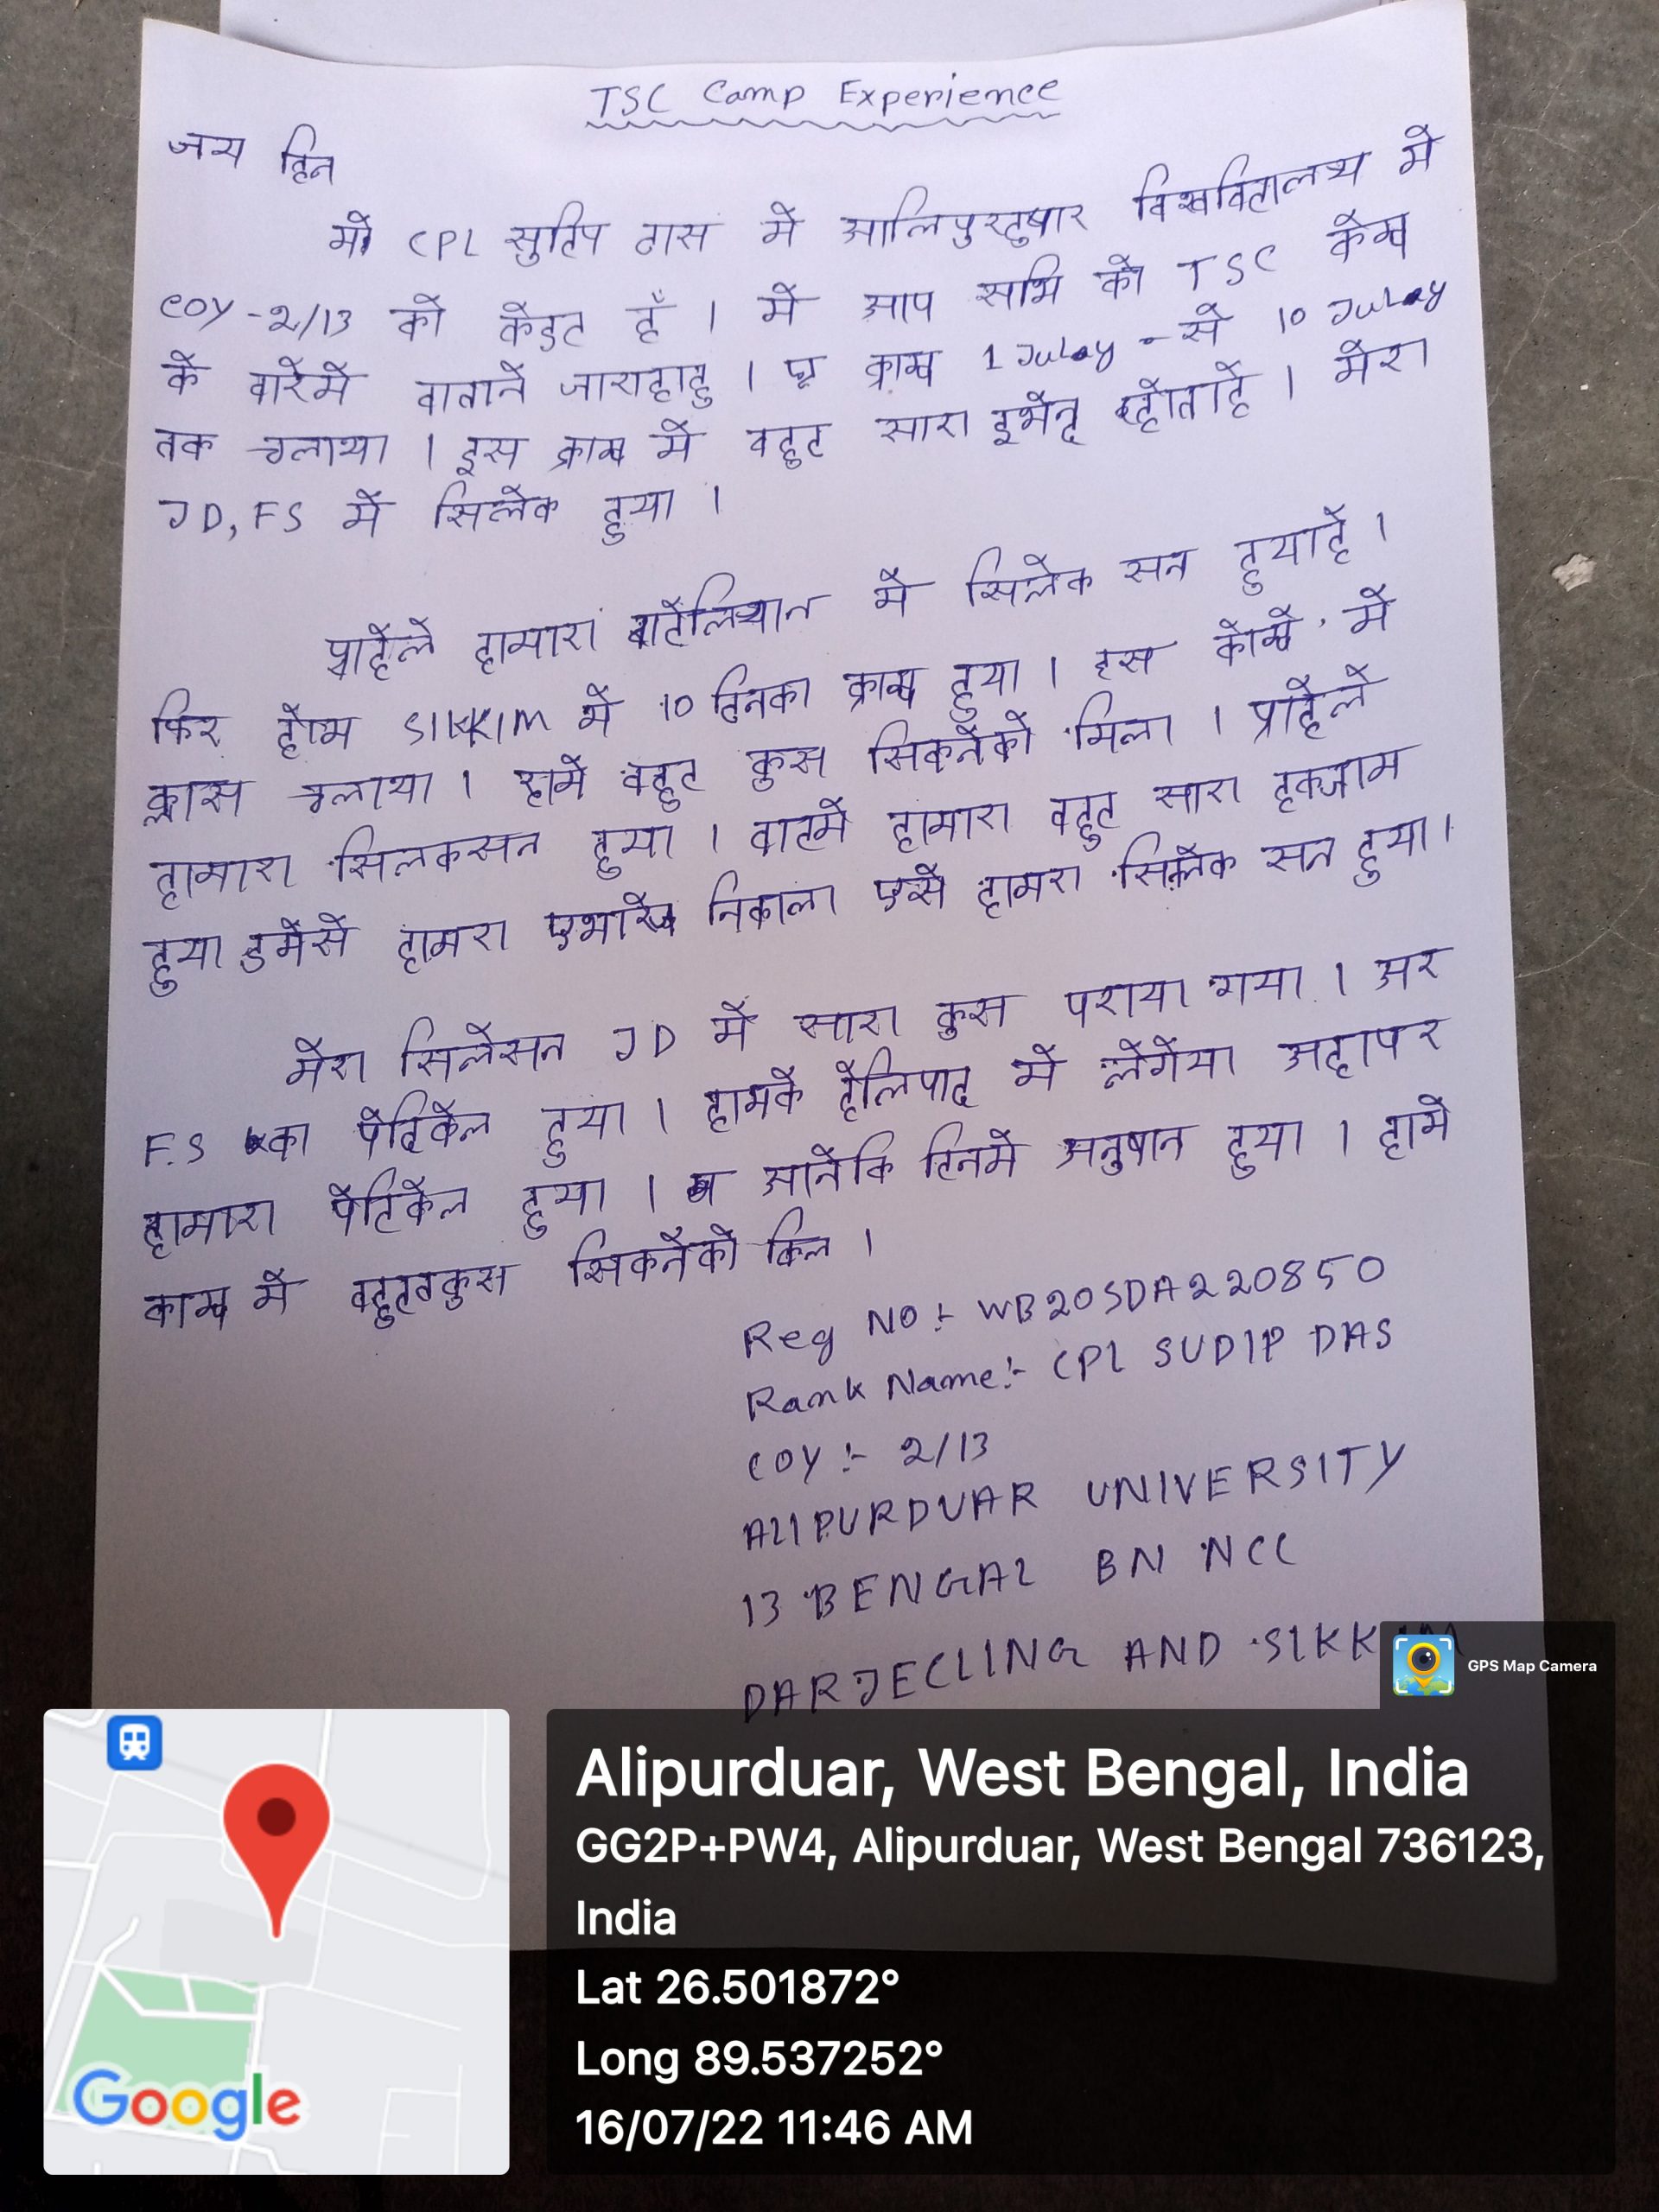 TSC Camp Experience
जय हिन
CPL सुदिप दास में आलिपुरदुयार विश्वविद्यालय में
COY-2/13 को केडट हुँ । में आप सभि को TSC केम्प
के बारेमें बाताने जाराहाहु । क्राम्प 1 Julay - से 10 Julay
तक चलाया । इस क्राम्प में बहुट सारा इभेन्ट होताहे । मेरा
JD, FS में सिलेक हुया ।
हामारा बाटेलियान में सिलेक सन हुयाहे ।
फिर हाम SIKKIM में 10 दिनका क्राम्प हुया । इस में
क्लास चलाया । हामे बहुट कुस सिकनेको मिला । प्राहेले
हामारा सिलकसन हुया । बादमे हामारा बहुट सारा इकजाम
हुया हामरा निकाला एसे हामरा सिलेक सन हुया।
मेरा सिलेसन JD में सारा कुस पराया गया । अर
F.S का हुया । हामके हेलिपाद में लेगेया
हामारा हुया । दिनमे अनुषान हुया । हामे
काम्प में सिकनेको ।
Reg NO:- WB20SDA220850
Rank Name:- CPL SUDIP DAS
COY :- 2/13
ALIPURDUAR UNIVERSITY
13 BENGAL BN NCC
DARJECLING AND SIKKIM
GPS Map Camera
Alipurduar, West Bengal, India
GG2P+PW4, Alipurduar, West Bengal 736123,
India
Lat 26.501872°
Long 89.537252°
16/07/22 11:46 AM
Google